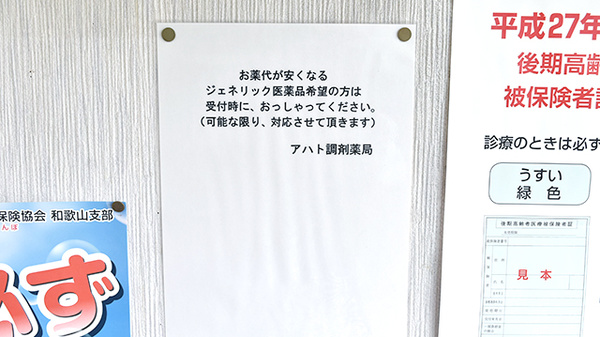 お薬代が安くなる
ジェネリック医薬品希望の方は
受付時に、おっしゃってください。
（可能な限り、対応させて頂きます）
アハト調剤薬局
保険協会 和歌山支部
んぽ
必ず
平成27年
後期高齢
被保険者証
診療のときは必ず
うすい
緑色
後期高齢者医療被保険者証
見本